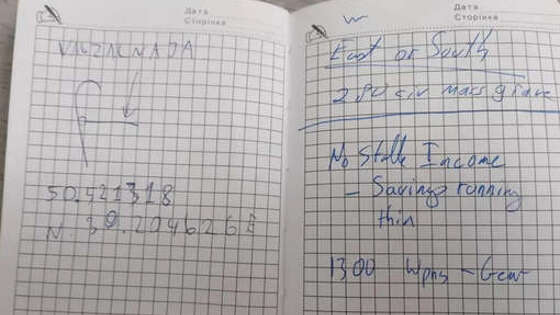 Дата
Сторінка
VALZALNADA
50.521318
N. 39.204626 E
Дата
Сторінка
W
East or South
280 civ mass grave
No Stable Income
- Savings running
thin
1300 Wpns - Gear